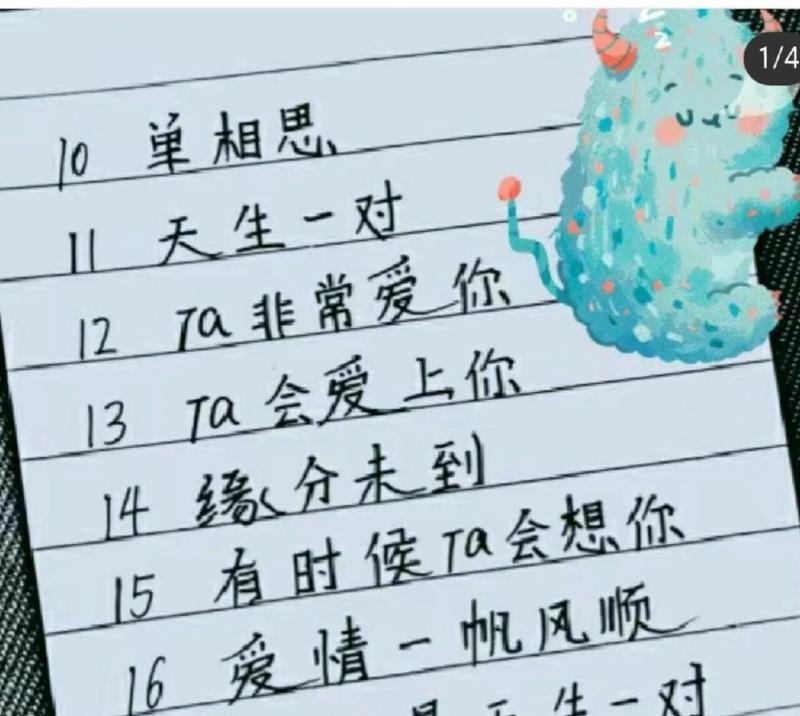 1/4
10 单相思
11 天生一对
12 Ta非常爱你
13 Ta会爱上你
14 缘分未到
15 有时候Ta会想你
16 爱情一帆风顺
天生一对